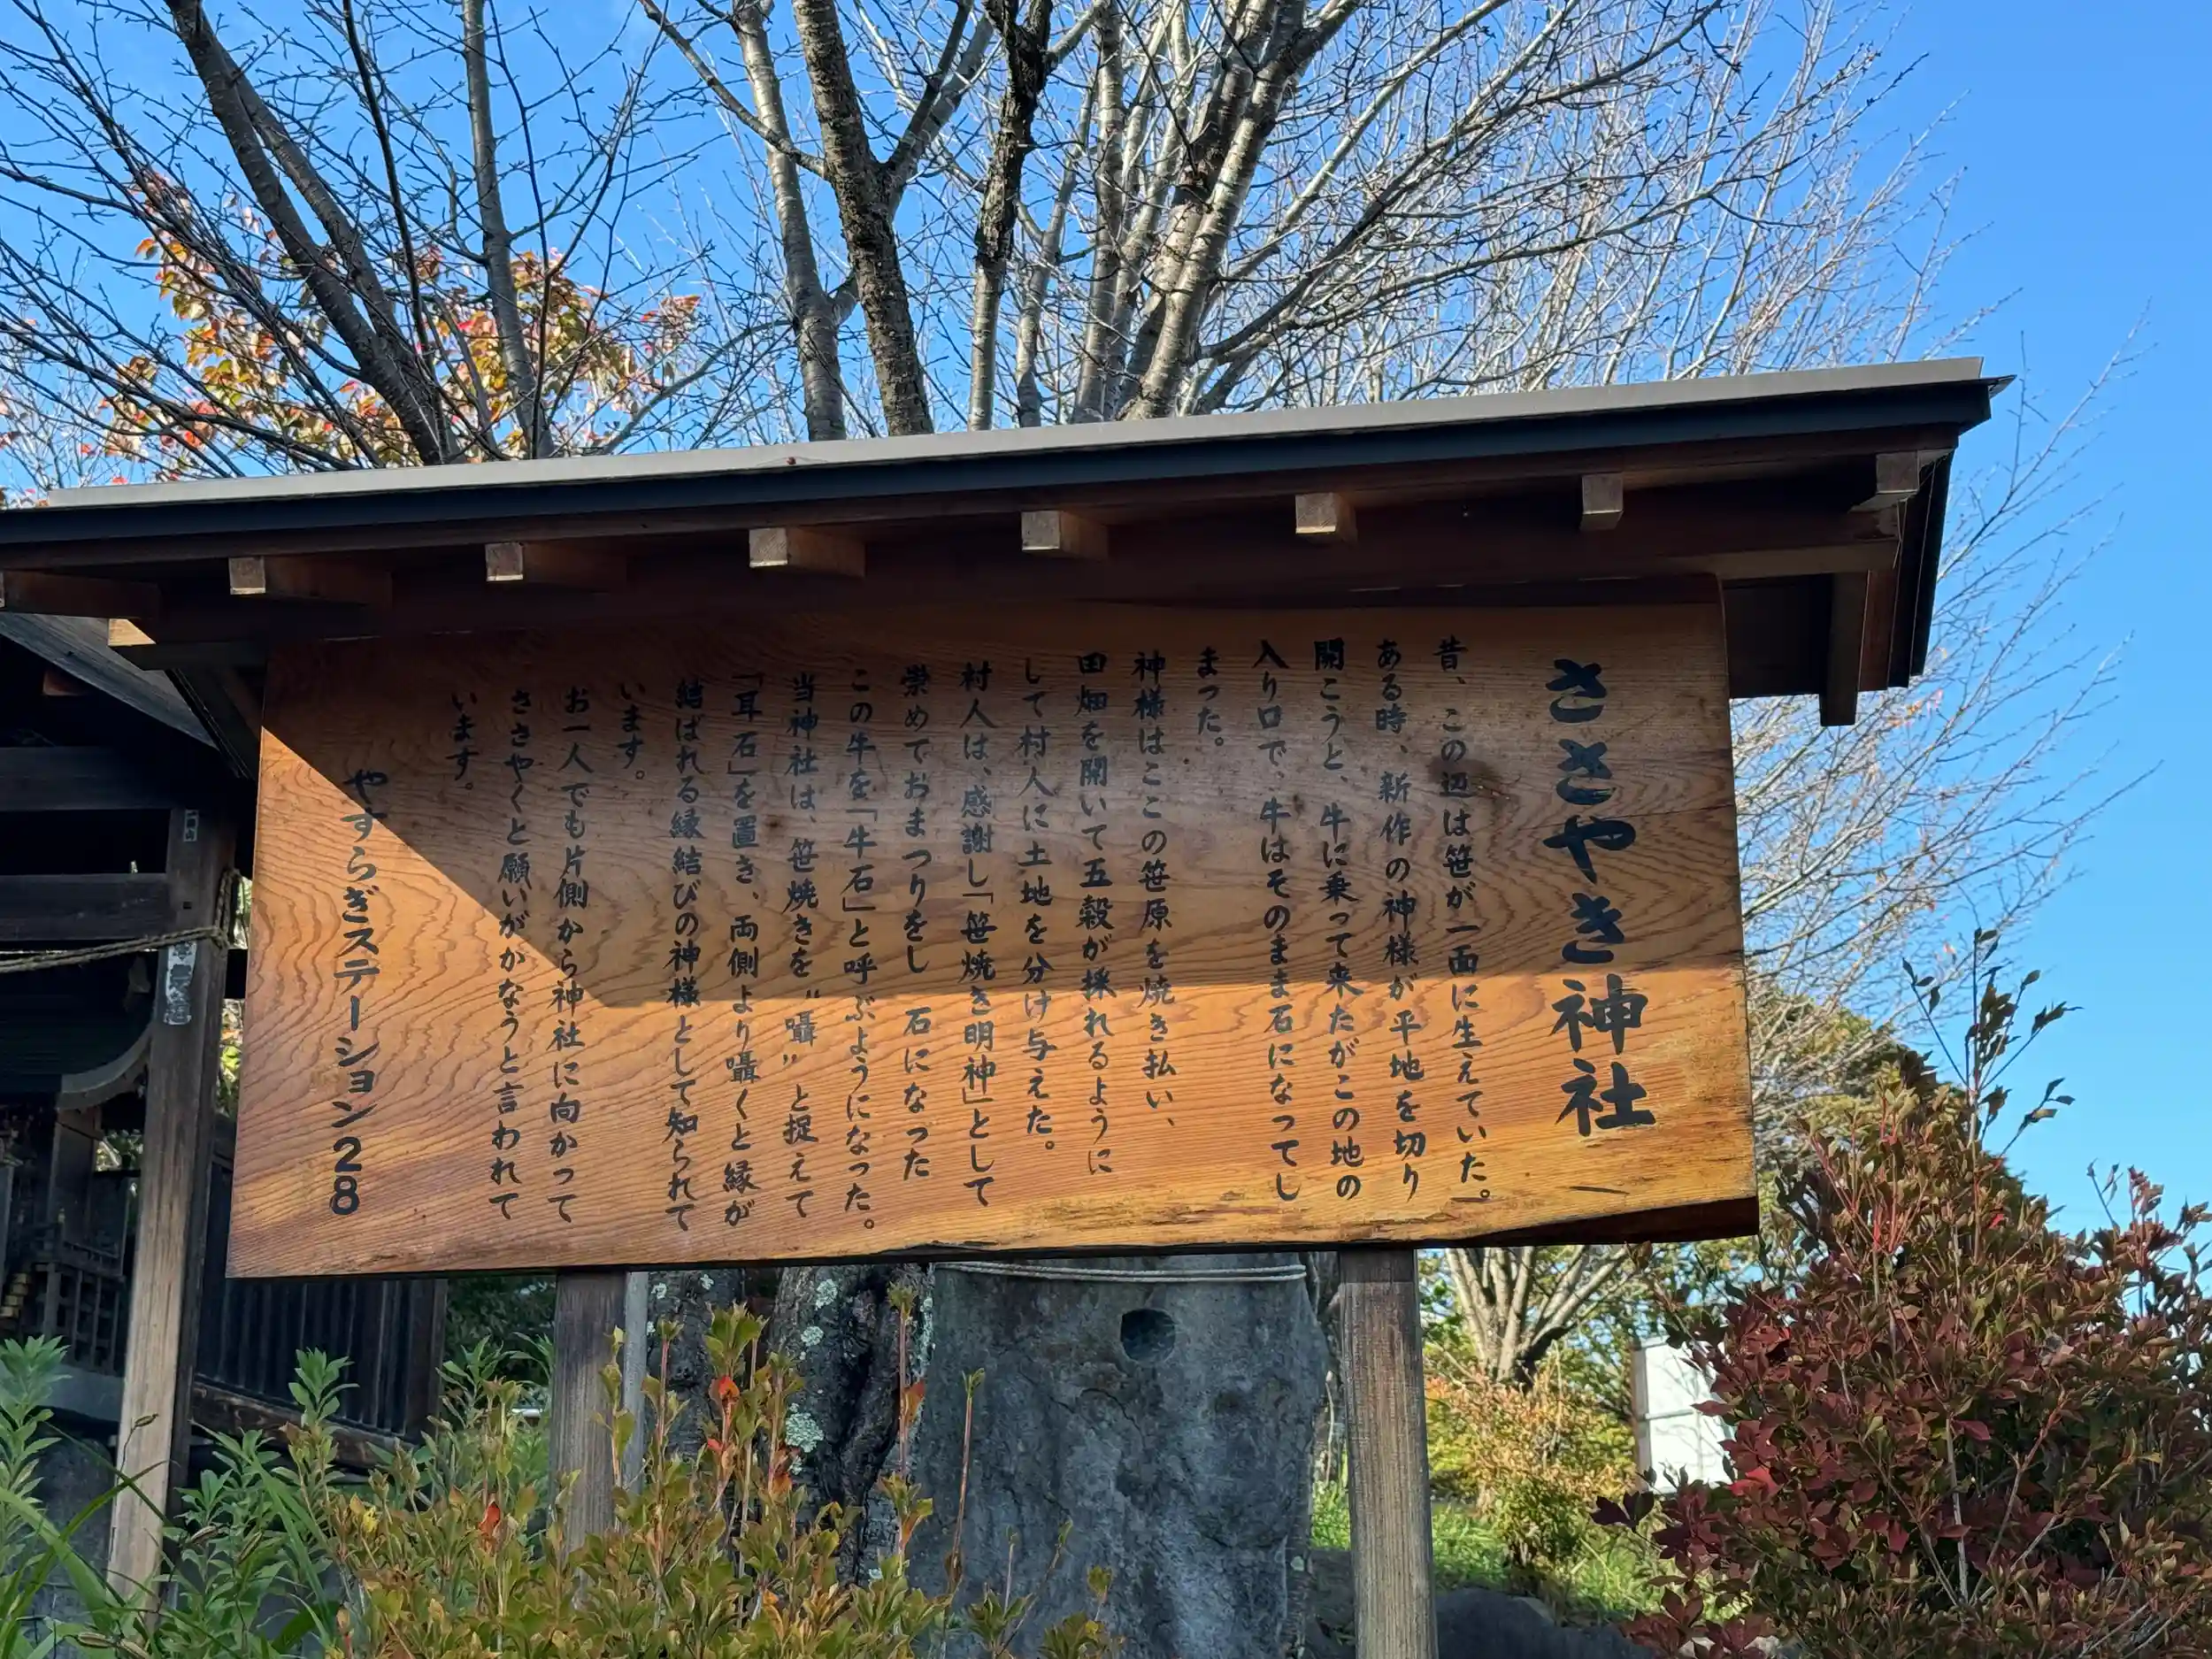 ささやき神社
昔、この辺は笹が一面に生えていた。
ある時、新作の神様が平地を切り
開こうと、牛に乗って来たがこの地の
入り口で、牛はそのまま石になってし
まった。
神様はここの笹原を焼き払い、
田畑を開いて五穀が採れるように
して村人に土地を分け与えた。
村人は、感謝し「笹焼き明神」として
崇めておまつりをし 石になった
この牛を「牛石」と呼ぶようになった。
当神社は、笹焼きを〝囁〟と捉えて
「耳石」を置き、両側より囁くと縁が
結ばれる縁結びの神様として知られて
います。
お一人でも片側から神社に向かって
ささやくと願いがかなうと言われて
います。
やすらぎステーション28